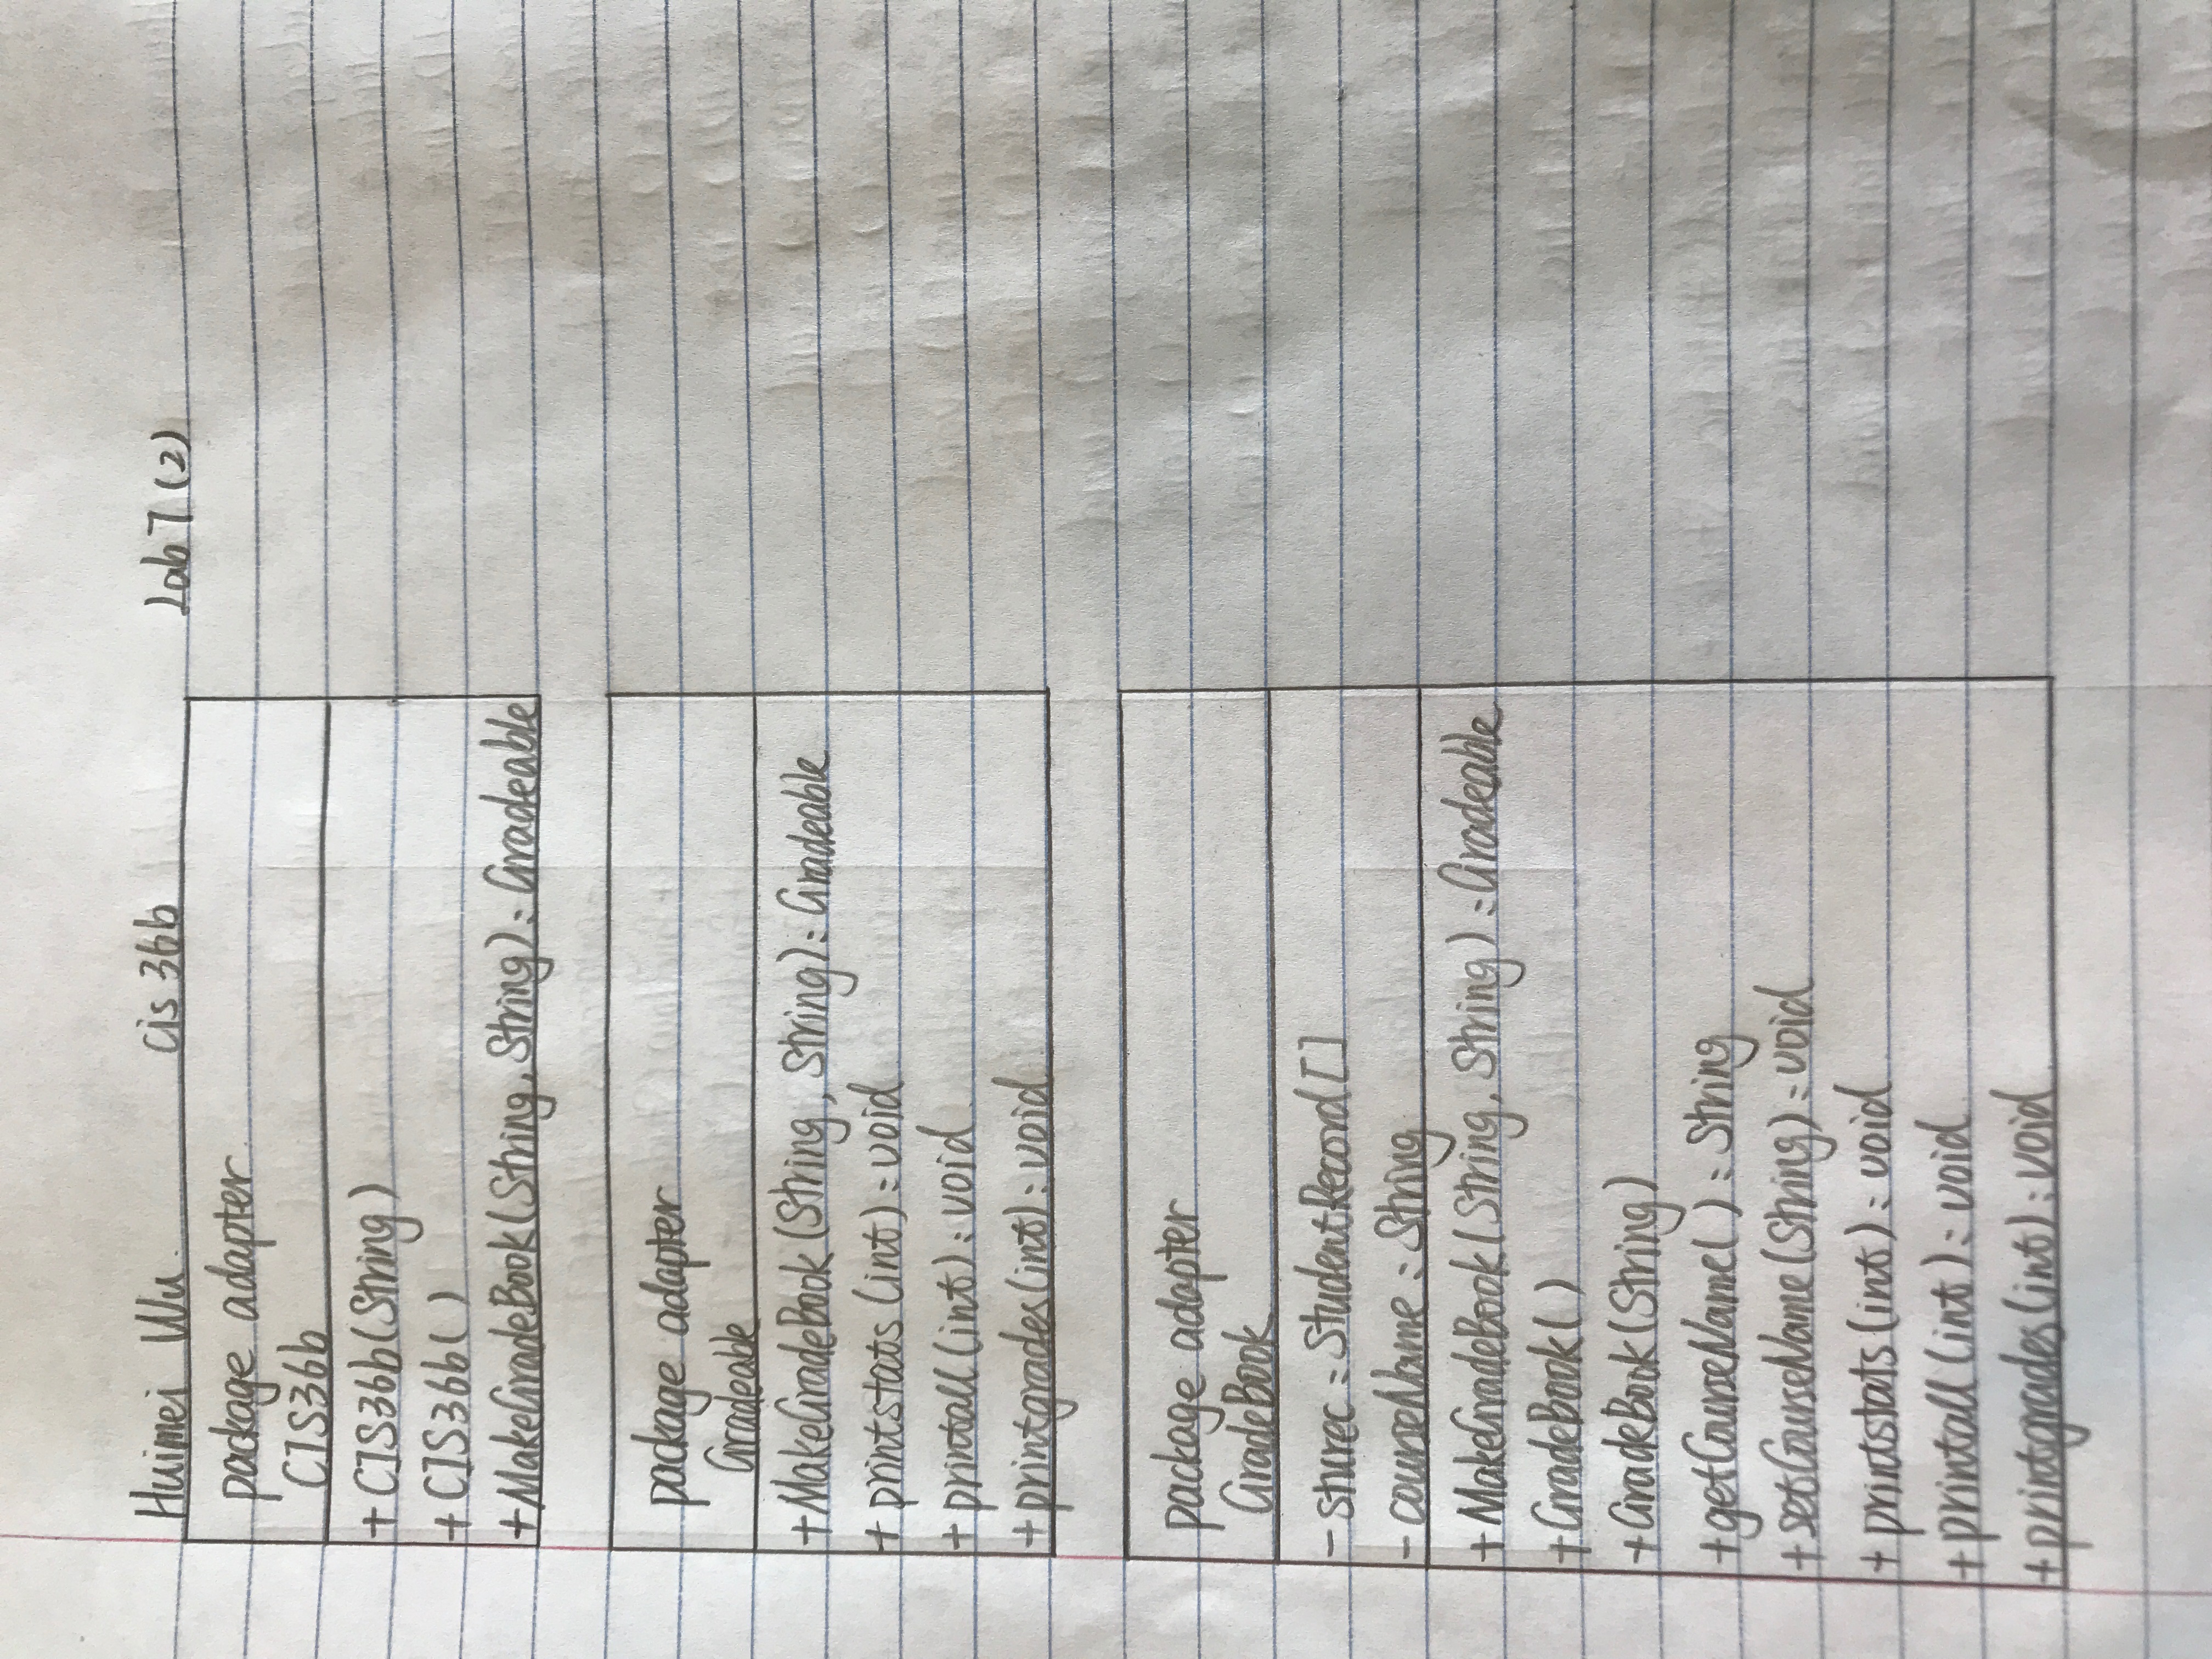 Huimei Wu. cis 36b Lab 7 (2)
package adapter
CIS36b
+ CIS36b(String)
+ CIS36b( )
+MakeGradeBook(String, String): Gradeable
package adapter
Gradeable
+MakeGradeBook(String, String): Gradeable
+ printstats(int): void
+ printall(int): void
+ printgrades(int): void
package adapter
GradeBook
- sturec: StudentRecord[]
- courseName: String
+ MakeGradeBook(String, String): Gradeable
+GradeBook( )
+GradeBook(String)
+getCourseName( ): String
+setCourseName(String): void
+ printstats(int): void
+printall(int): void
+printgrades(int): void